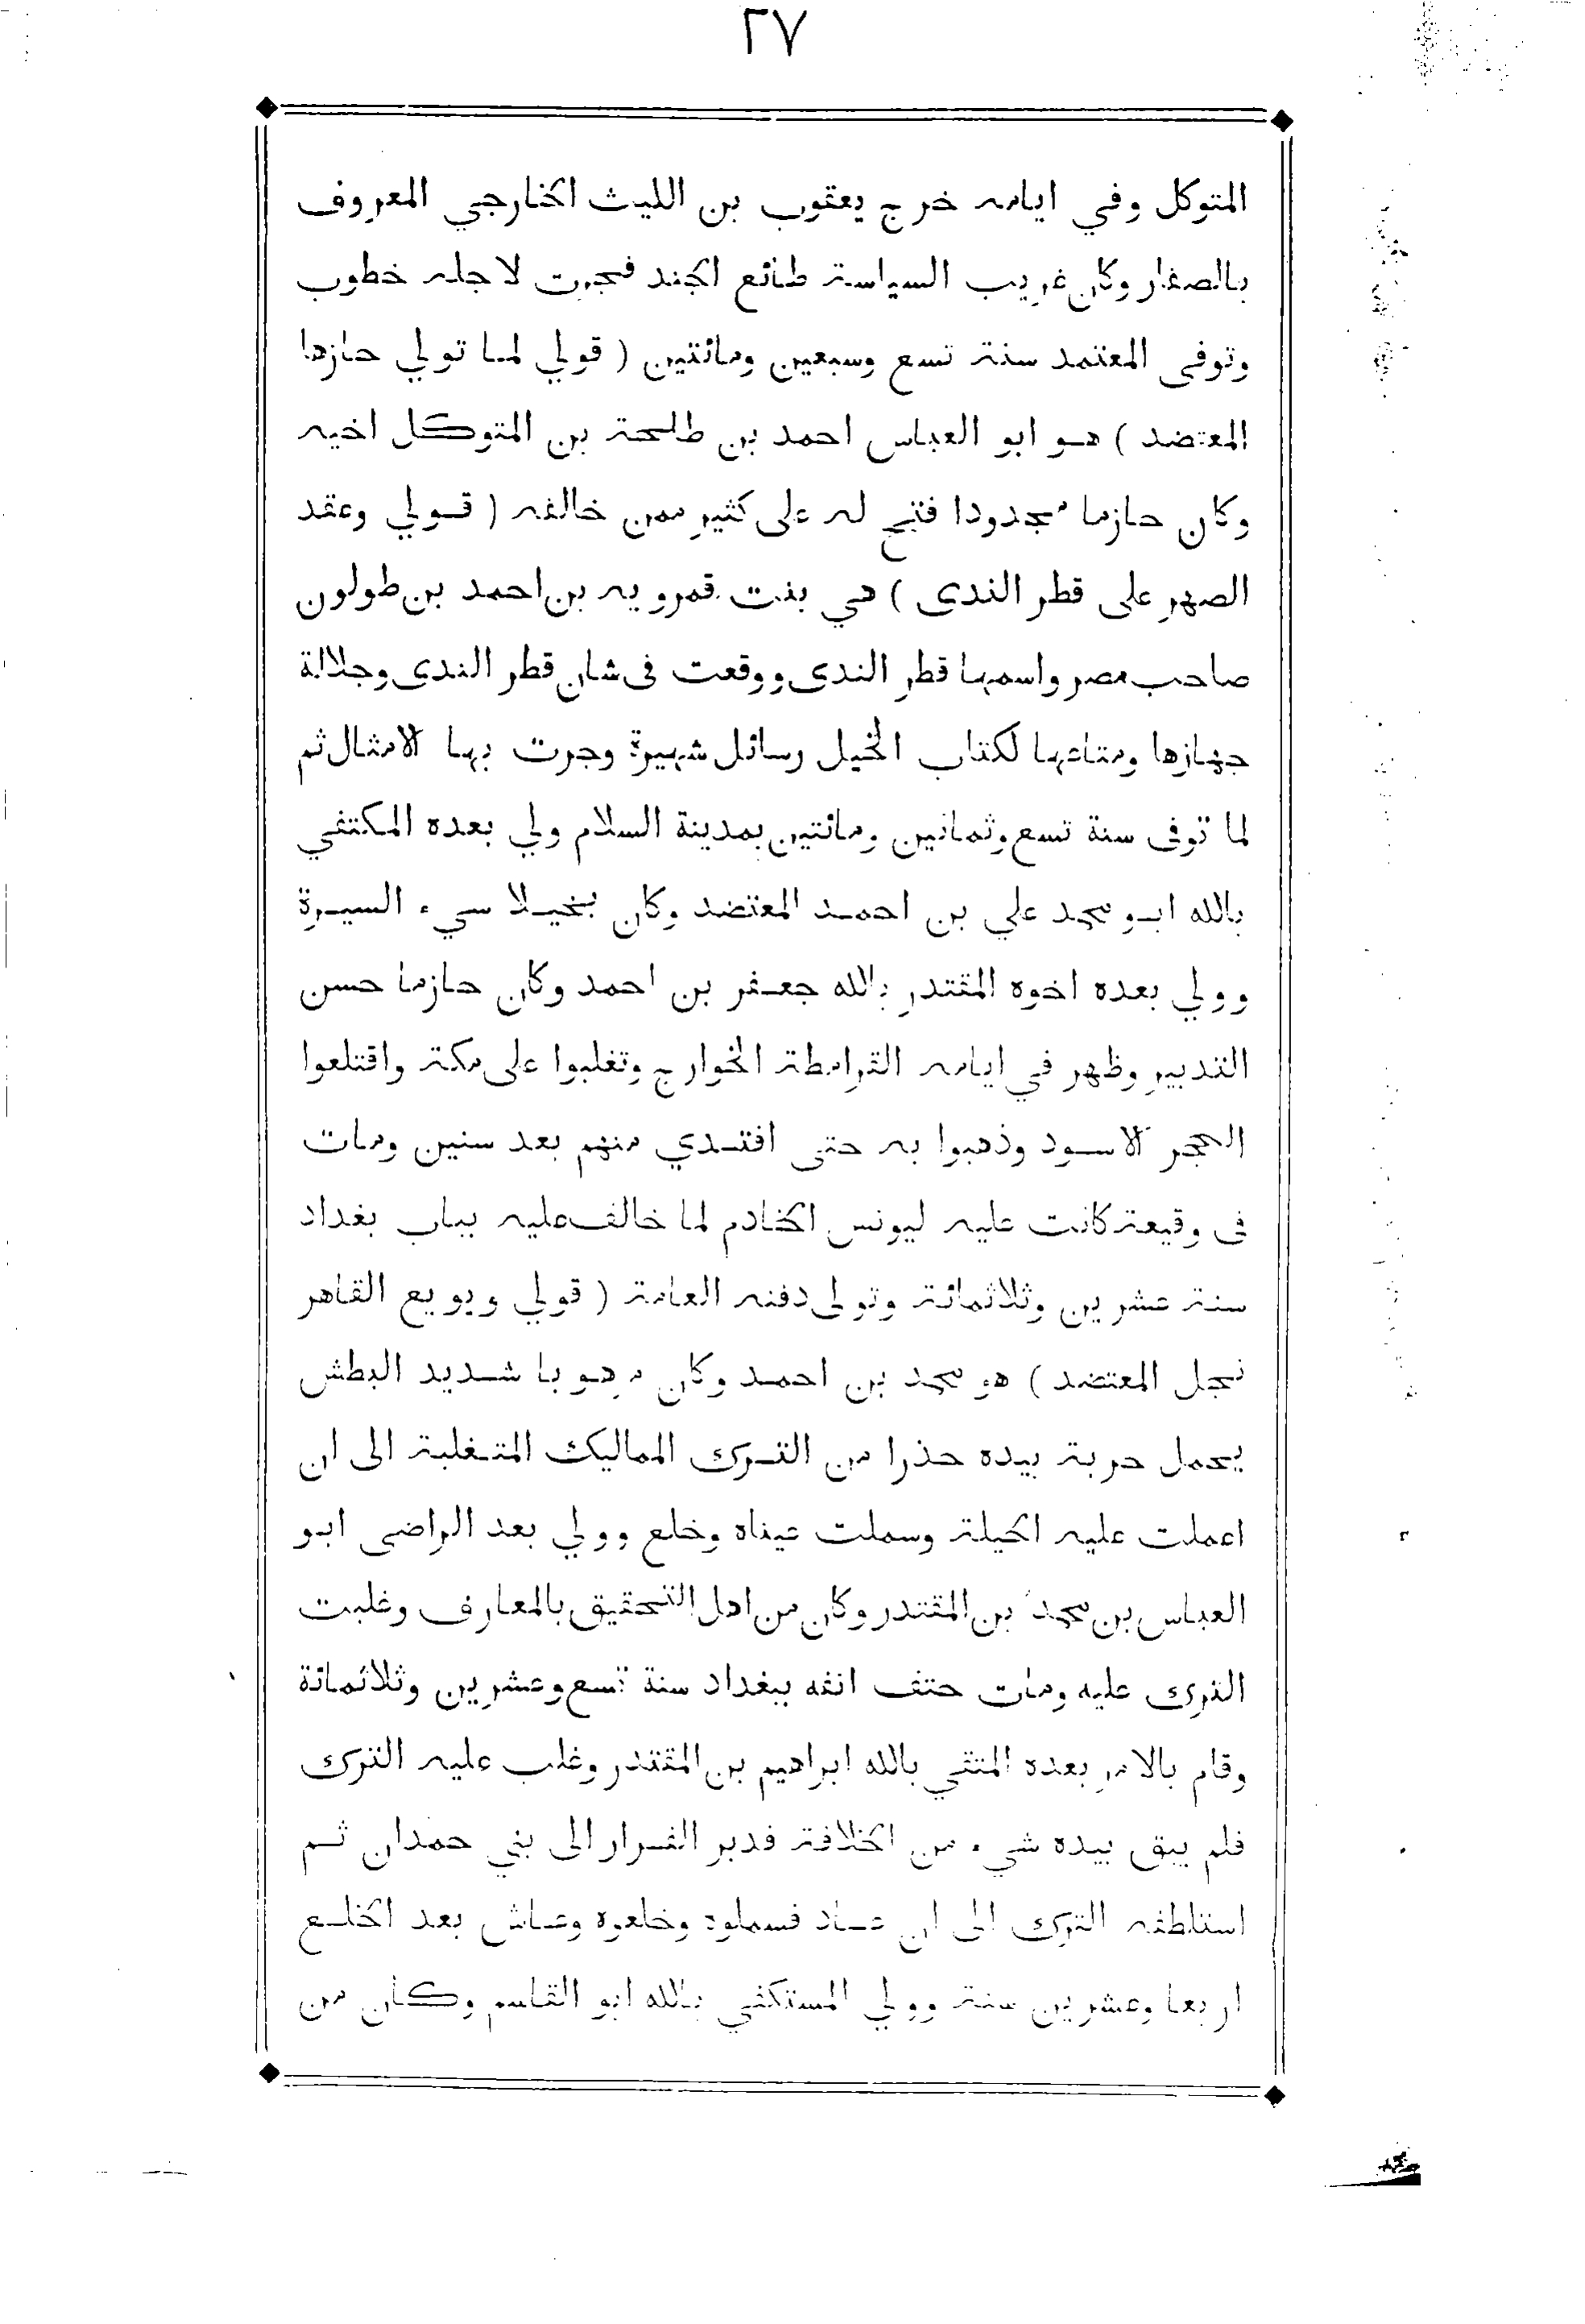 ٢٧
المتوكل وفي ايامه خرج يعقوب بن الليث الخارجي المعروف
بالصفار وكان غريب السياسة طائع الجند فجرت لاجله خطوب
وتوفى المعتمد سنة تسع وسبعين ومائتين ( قولي لما تولي حازها
المعتضد ) هو ابو العباس احمد بن طلحة بن المتوكل اخيه
وكان حازما مجدودا فتح له على كثير ممن خالفه ( قولي وعقد
الصهر على قطر الندى ) هي بنت قمرويه بن احمد بن طولون
صاحب مصر واسمها قطر الندى ووقعت فى شان قطر الندى وجلالة
جهازها ومتاعها لكتاب الخيل رسائل شهيرة وجرت بها الامثال ثم
لما توفى سنة تسع وثمانين ومائتين بمدينة السلام ولي بعده المكتفي
بالله ابو محمد علي بن احمد المعتضد وكان بخيلا سيء السيرة
وولي بعده اخوه المقتدر بالله جعفر بن احمد وكان حازما حسن
التدبير وظهر في ايامه القرامطة الخوارج وتغلبوا على مكة واقتلعوا
الحجر الاسود وذهبوا به حتى افتدي منهم بعد سنين ومات
فى وقيعة كانت عليه ليونس الخادم لما خالف عليه بباب بغداد
سنة عشرين وثلاثمائة وتولى دفنه العامة ( قولي وبويع القاهر
نجل المعتضد ) هو محمد بن احمد وكان مهوبا شديد البطش
يحمل حربة بيده حذرا من الترك المماليك المتغلبة الى ان
اعملت عليه الحيلة وسملت عيناه وخلع وولي بعد الراضى ابو
العباس بن محمد بن المقتدر وكان من اهل التحقيق بالمعارف وغلبت
الترك عليه ومات حتف انفه ببغداد سنة تسع وعشرين وثلاثمائة
وقام بالامر بعده المتقي بالله ابراهيم بن المقتدر وغلب عليه الترك
فلم يبق بيده شيء من الخلافة فدبر الفرار الى بني حمدان ثم
استلطفه الترك الى ان عاد فسملوه وخلعوه وعاش بعد الخلع
اربعا وعشرين سنة وولي المستكفي بالله ابو القاسم وكان من